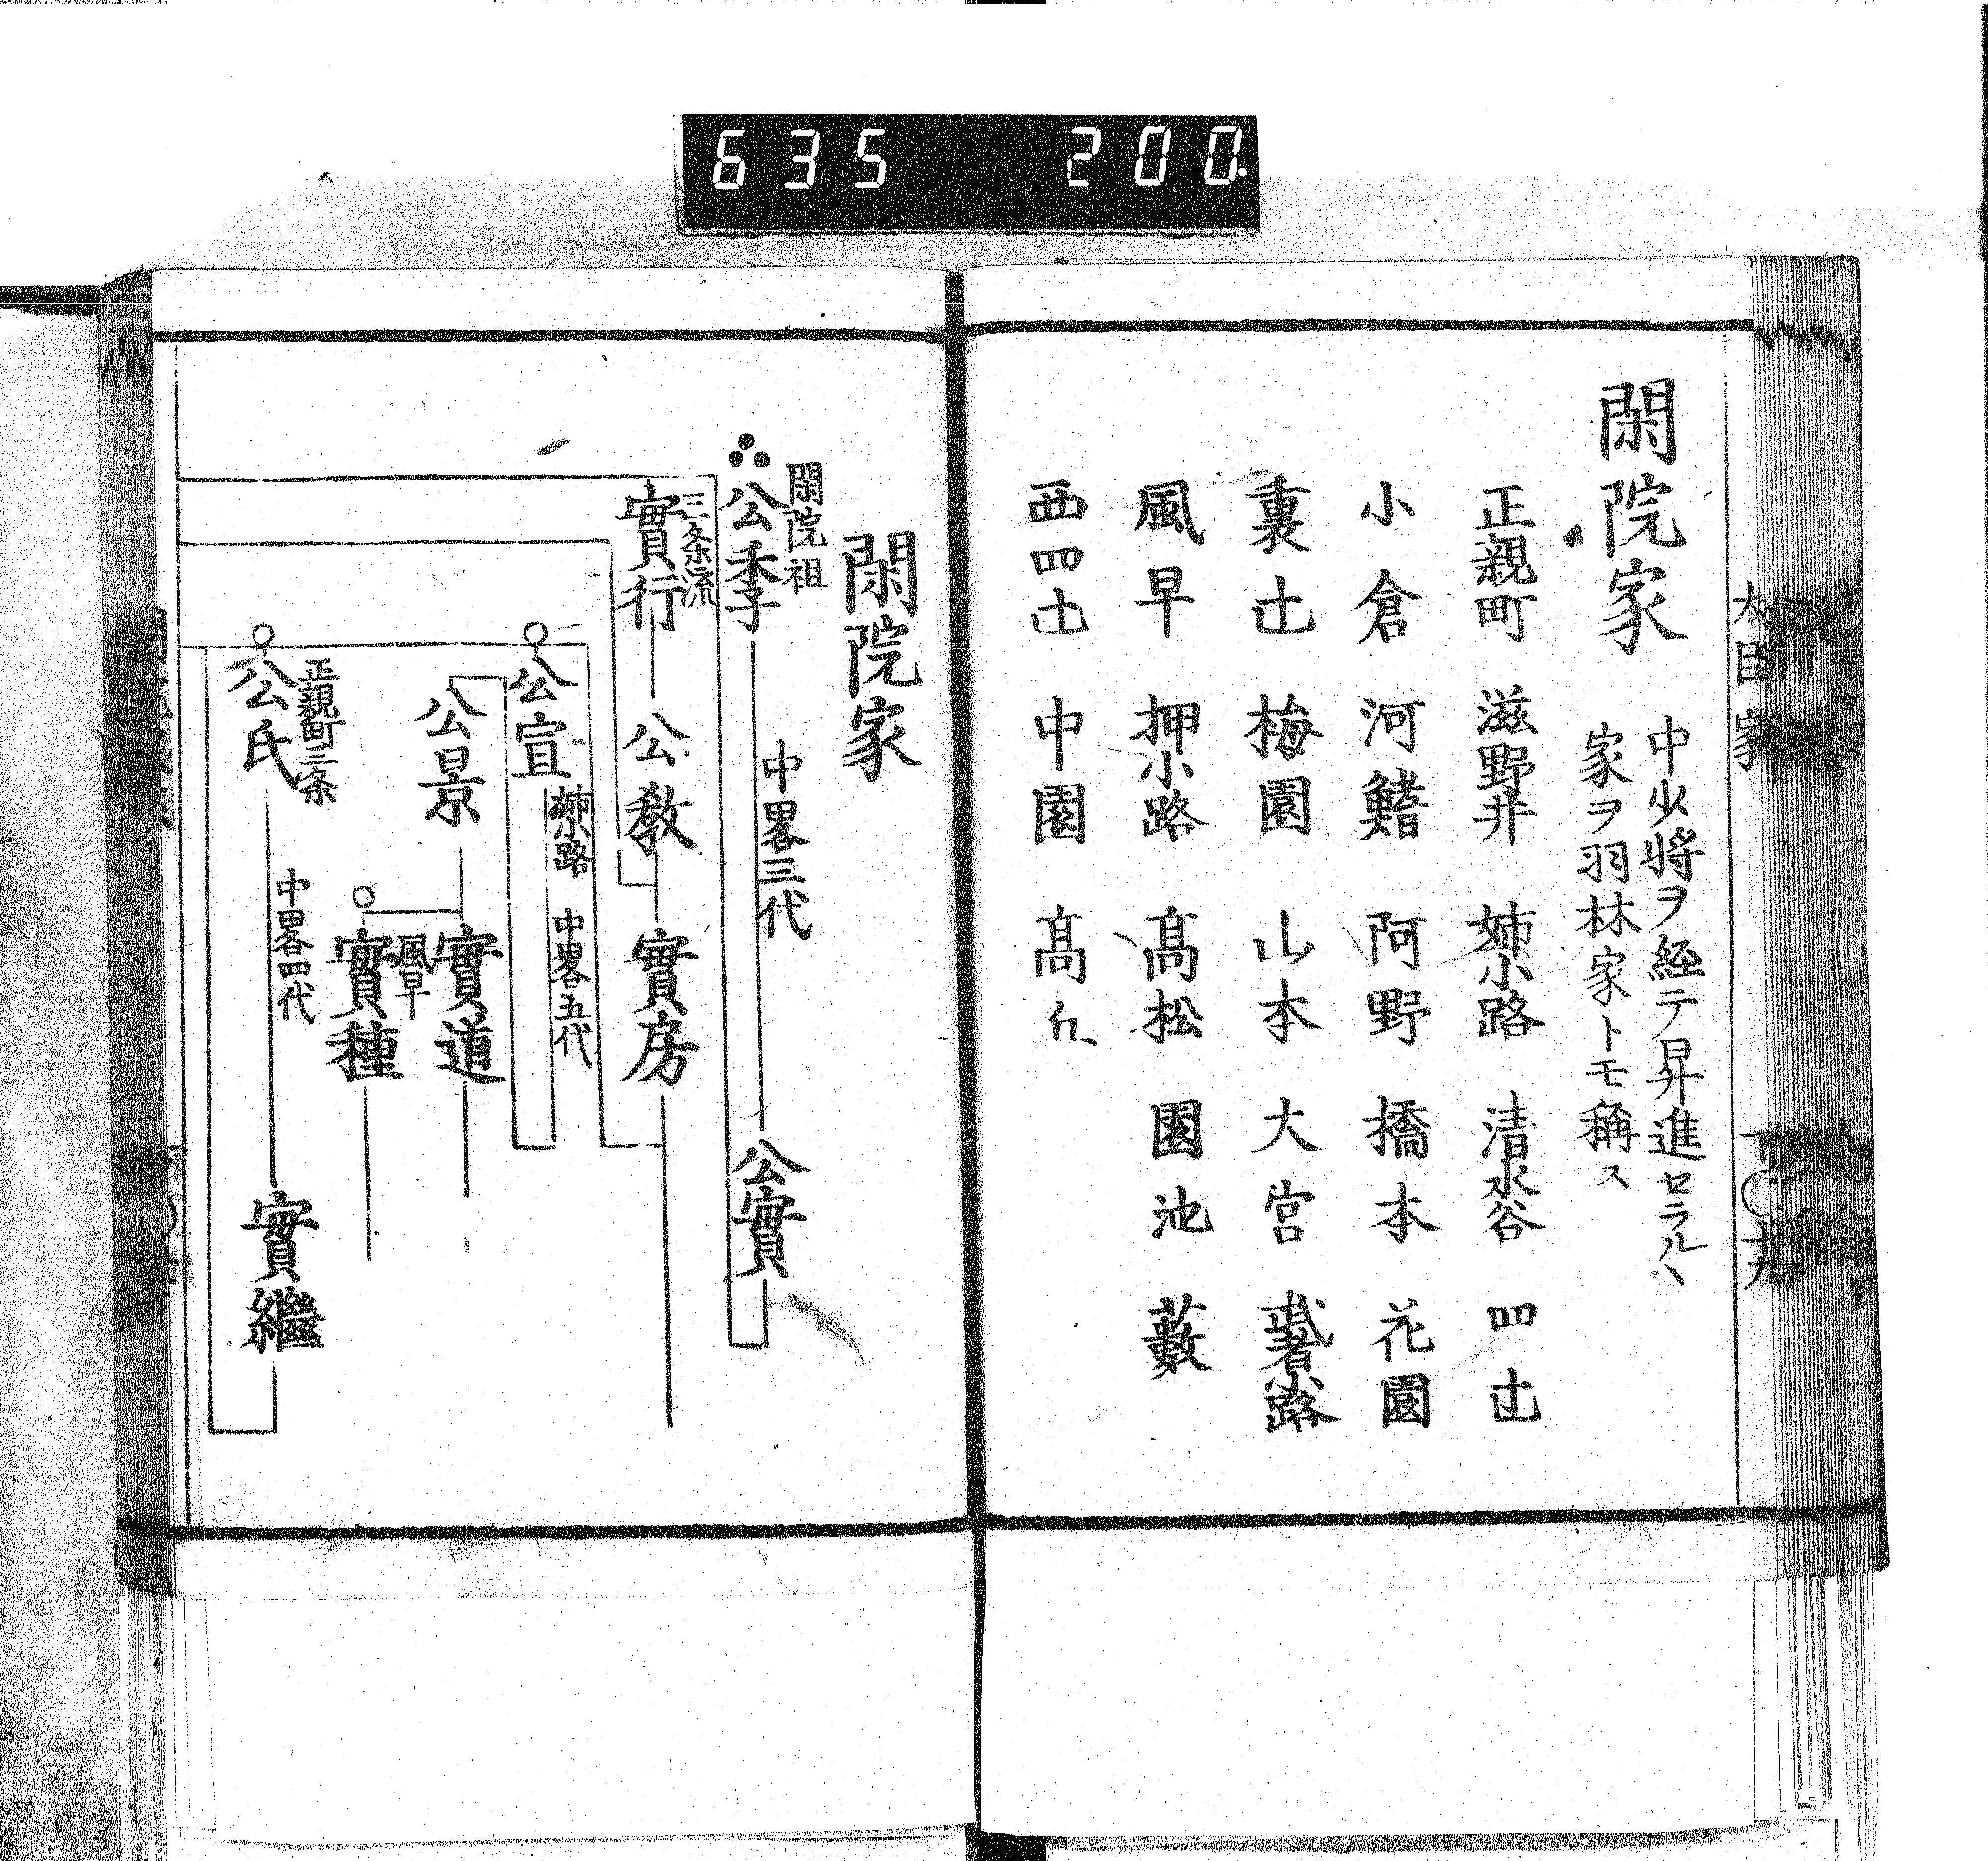 635 200.
閑院家
中少将ヲ經テ昇進セラルヽ
家ヲ羽林家トモ稱ス
正親町 滋野井 姉小路 清水谷 四辻
小倉 河鰭 阿野 橋本 花園
裏辻 梅園 山本 大宮 武者小路
風早 押小路 髙松 園池 藪
西四辻 中園 髙丘
閑院家
閑院祖
公季 中畧三代 公實
三条流
實行 公教 實房
公宣 姉小路 中畧五代
公景 實道
風早
實種
正親町三条
公氏 中畧四代 實繼